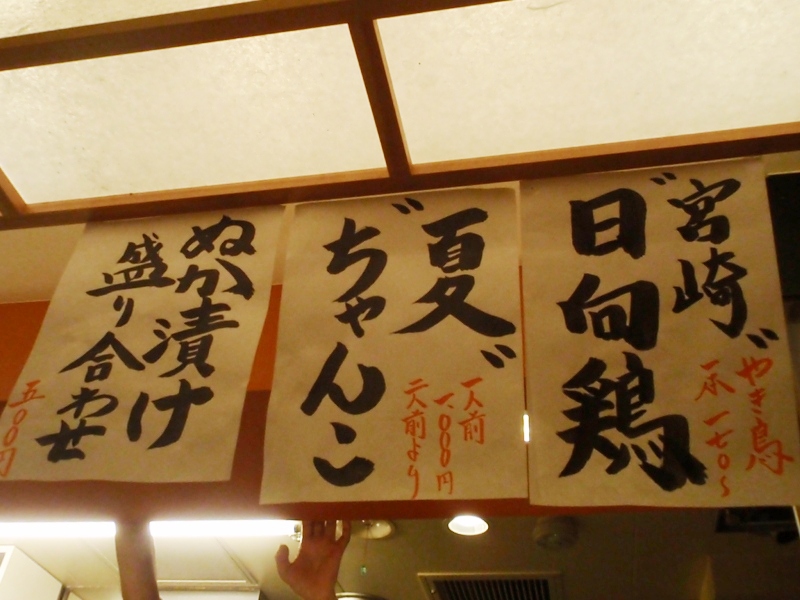 宮崎〝
日向鶏〝
やき鳥
一本 一七〇～
夏〝
〝ぢゃんこ
一人前
一、〇〇〇円
二人前より
ぬか漬け
盛り合わせ
五〇〇円